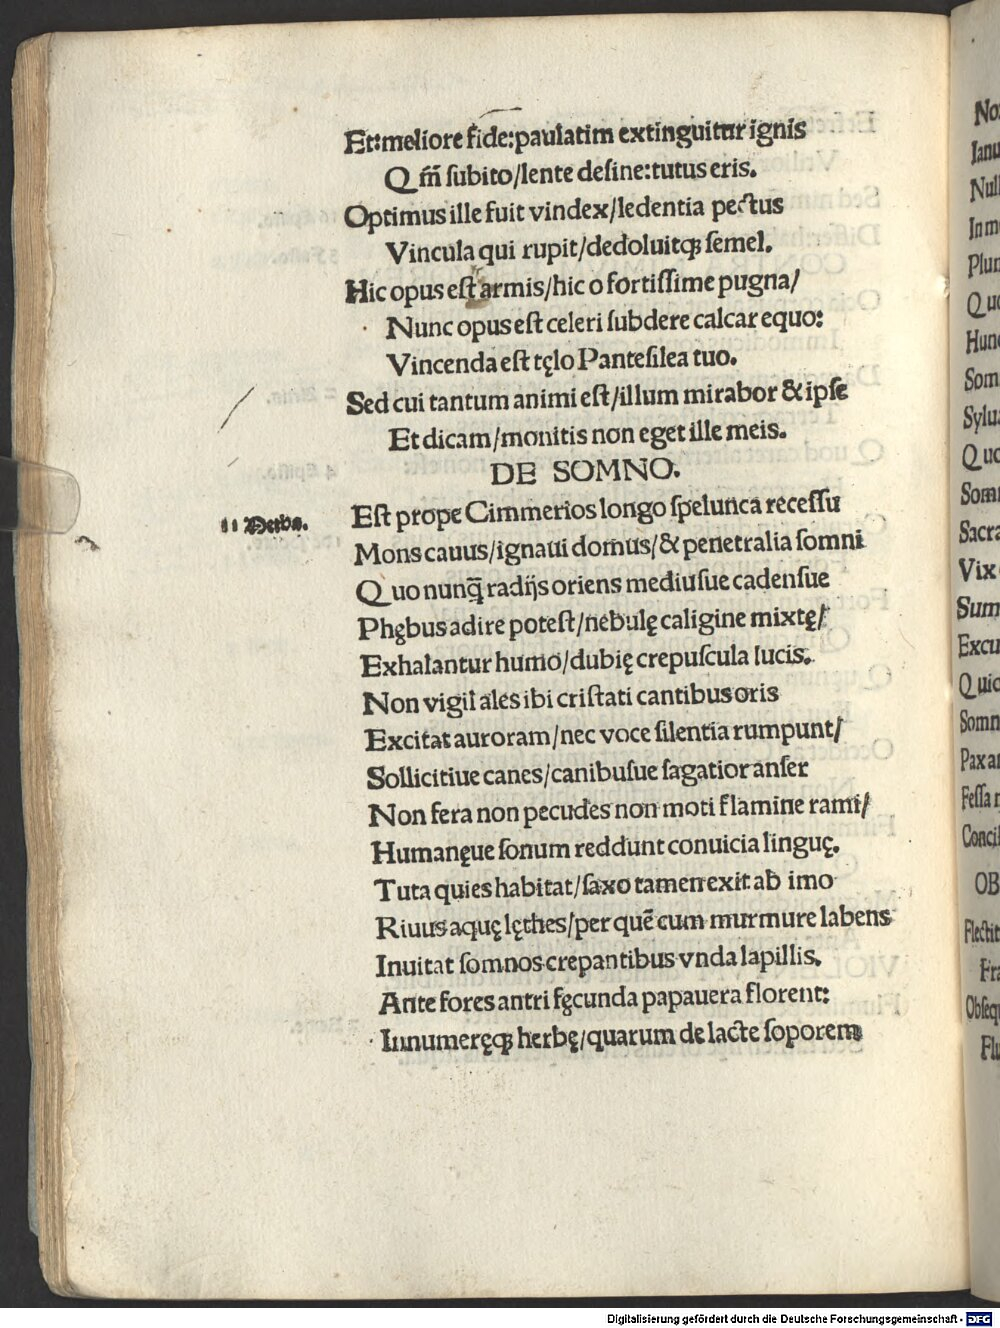 Et:meliore fide:paulatim extinguitur ignis
Q m̃ subito/lente desine:tutus eris.
Optimus ille fuit vindex/ledentia pectus
Vincula qui rupit/dedoluitqꝫ semel.
Hic opus est armis/hic o fortissime pugna/
Nunc opus est celeri subdere calcar equo:
Vincenda est tęlo Pantesilea tuo.
Sed cui tantum animi est/illum mirabor & ipse
Et dicam/monitis non eget ille meis.
DE SOMNO.
11 Metha.
Est prope Cimmerios longo spelunca recessu
Mons cauus/ignaui domus/& penetralia somni
Quo nunq̃ radijs oriens mediusue cadensue
Phębus adire potest/nebulę caligine mixtę/
Exhalantur humo/dubię crepuscula lucis.
Non vigil ales ibi cristati cantibus oris
Excitat auroram/nec voce silentia rumpunt/
Sollicitiue canes/canibusue sagatior anser
Non fera non pecudes non moti flamine rami/
Humanęue sonum reddunt conuicia linguę.
Tuta quies habitat/saxo tamen exit ab imo
Riuus aquę lęthes/per quẽ cum murmure labens
Inuitat somnos crepantibus vnda lapillis.
Ante fores antri fęcunda papauera florent:
Innumeręqꝫ herbę/quarum de lacte soporem
No
Ianu
Null
In m
Plur
Quo
Hunc
Som
Sylu
Quo
Somn
Sacra
Vix
Sum
Excu
Quic
Somn
Pax a
Fessa
Concil
OB
Flectit
Fra
Obsequ
Flu
Digitalisierung gefördert durch die Deutsche Forschungsgemeinschaft - DFG